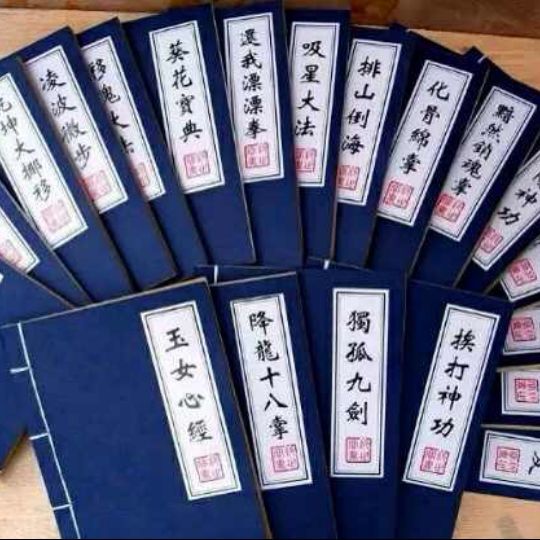 乾坤大挪移
凌波微步
移魂大法
葵花寶典
還我漂漂拳
吸星大法
排山倒海
化骨綿掌
黯然銷魂掌
神功
玉女心經
降龍十八掌
獨孤九劍
挨打神功